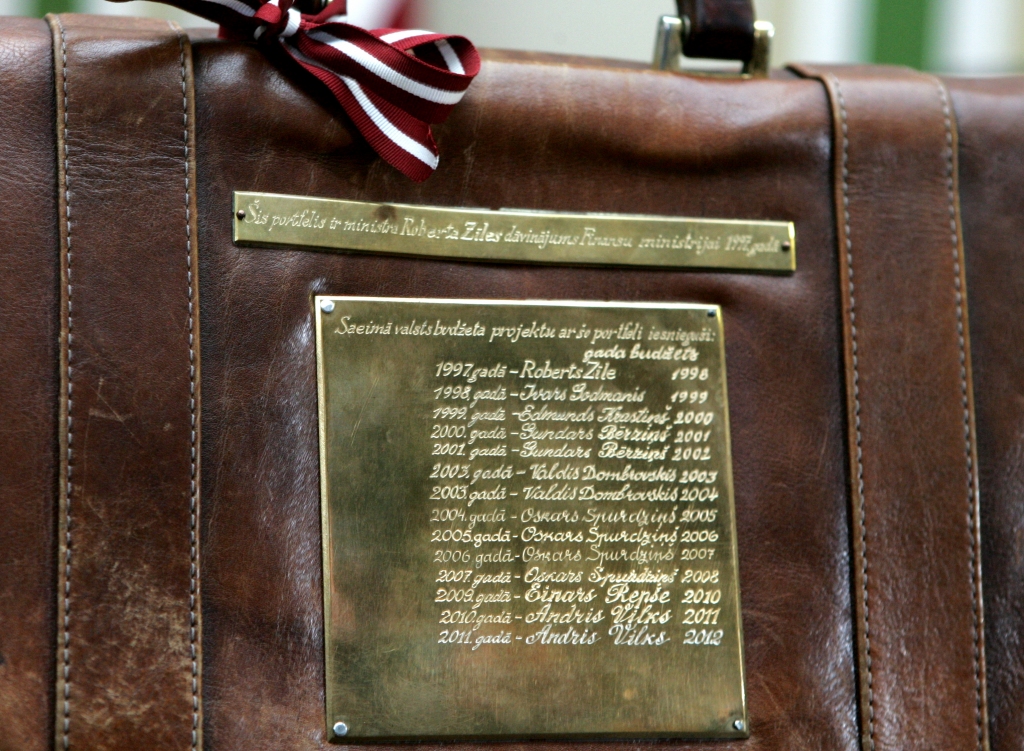 Šis portfelis ir ministra Roberta Zīles dāvinājums Finansu ministrijai 1997. gadā
Saeimā valsts budžeta projektu ar šo portfeli iesnieguši:
gada budžets
1997. gadā – Roberts Zīle 1998
1998. gadā – Ivars Godmanis 1999
1999. gadā – Edmunds Krastiņš 2000
2000. gadā – Gundars Bērziņš 2001
2001. gadā – Gundars Bērziņš 2002
2003. gadā – Valdis Dombrovskis 2003
2003. gadā – Valdis Dombrovskis 2004
2004. gadā – Oskars Spurdziņš 2005
2005. gadā – Oskars Spurdziņš 2006
2006. gadā – Oskars Spurdziņš 2007
2007. gadā – Oskars Spurdziņš 2008
2009. gadā – Einars Repše 2010
2010. gadā – Andris Vilks 2011
2011. gadā – Andris Vilks 2012